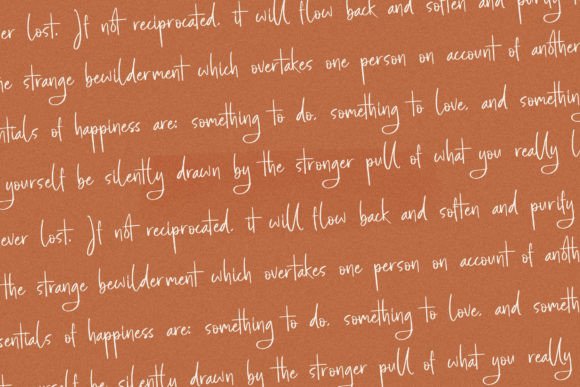 ever lost. If not reciprocated, it will flow back and soften and purify
the strange bewilderment which overtakes one person on account of another
entials of happiness are: something to do, something to love, and something
yourself be silently drawn by the stronger pull of what you really
ever lost. If not reciprocated, it will flow back and soften and purify
the strange bewilderment which overtakes one person on account of anoth
sentials of happiness are: something to do, something to love, and someth
yourself be silently drawn by the stronger pull of what you really